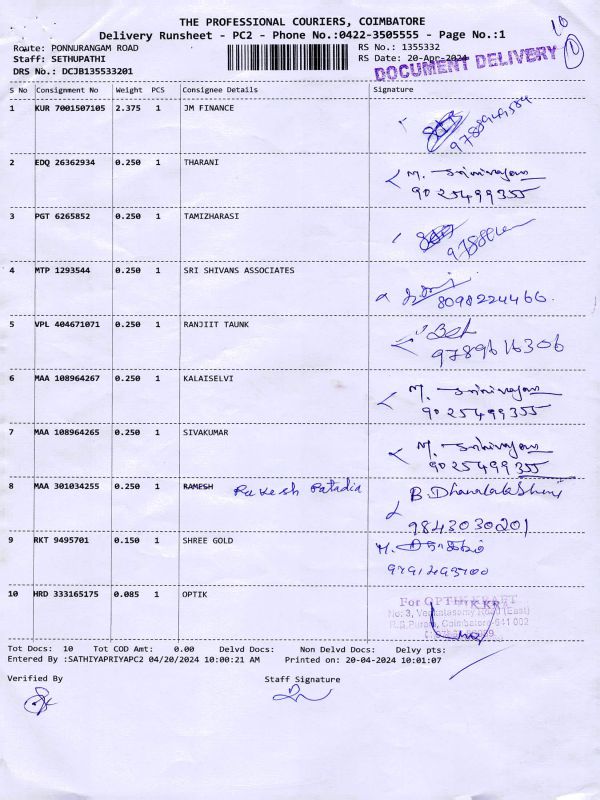 THE PROFESSIONAL COURIERS, COIMBATORE
Delivery Runsheet - PC2 - Phone No.:0422-3505555 - Page No.:1
10
1
Route: PONNURANGAM ROAD RS No.: 1355332
Staff: SETHUPATHI RS Date: 20-Apr-2024
DRS No.: DCJB135533201
DOCUMENT DELIVERY
S No Consignment No Weight PCS Consignee Details Signature
1 KUR 7001507105 2.375 1 JM FINANCE
2 EDQ 26362934 0.250 1 THARANI M. Srinivasan
9025499355
3 PGT 6265852 0.250 1 TAMIZHARASI
4 MTP 1293544 0.250 1 SRI SHIVANS ASSOCIATES
8098224466
5 VPL 404671071 0.250 1 RANJIT TAUNK
9789616306
6 MAA 108964267 0.250 1 KALAISELVI M. Srinivasan
9025499355
7 MAA 108964265 0.250 1 SIVAKUMAR M. Srinivasan
9025499355
8 MAA 301034255 0.250 1 RAMESH Rakesh Patadia B. Dhanalakshmi
9843030201
9 RKT 9495701 0.150 1 SHREE GOLD
10 HRD 333165175 0.085 1 OPTIK
For
No: 3, Venkatasamy Road (East)
R.S Puram, Coimbatore-641 002
Tot Docs: 10 Tot COD Amt: 0.00 Delvd Docs: Non Delvd Docs: Delvy pts:
Entered By :SATHIYAPRIYAPC2 04/20/2024 10:00:21 AM Printed on: 20-04-2024 10:01:07
Verified By Staff Signature